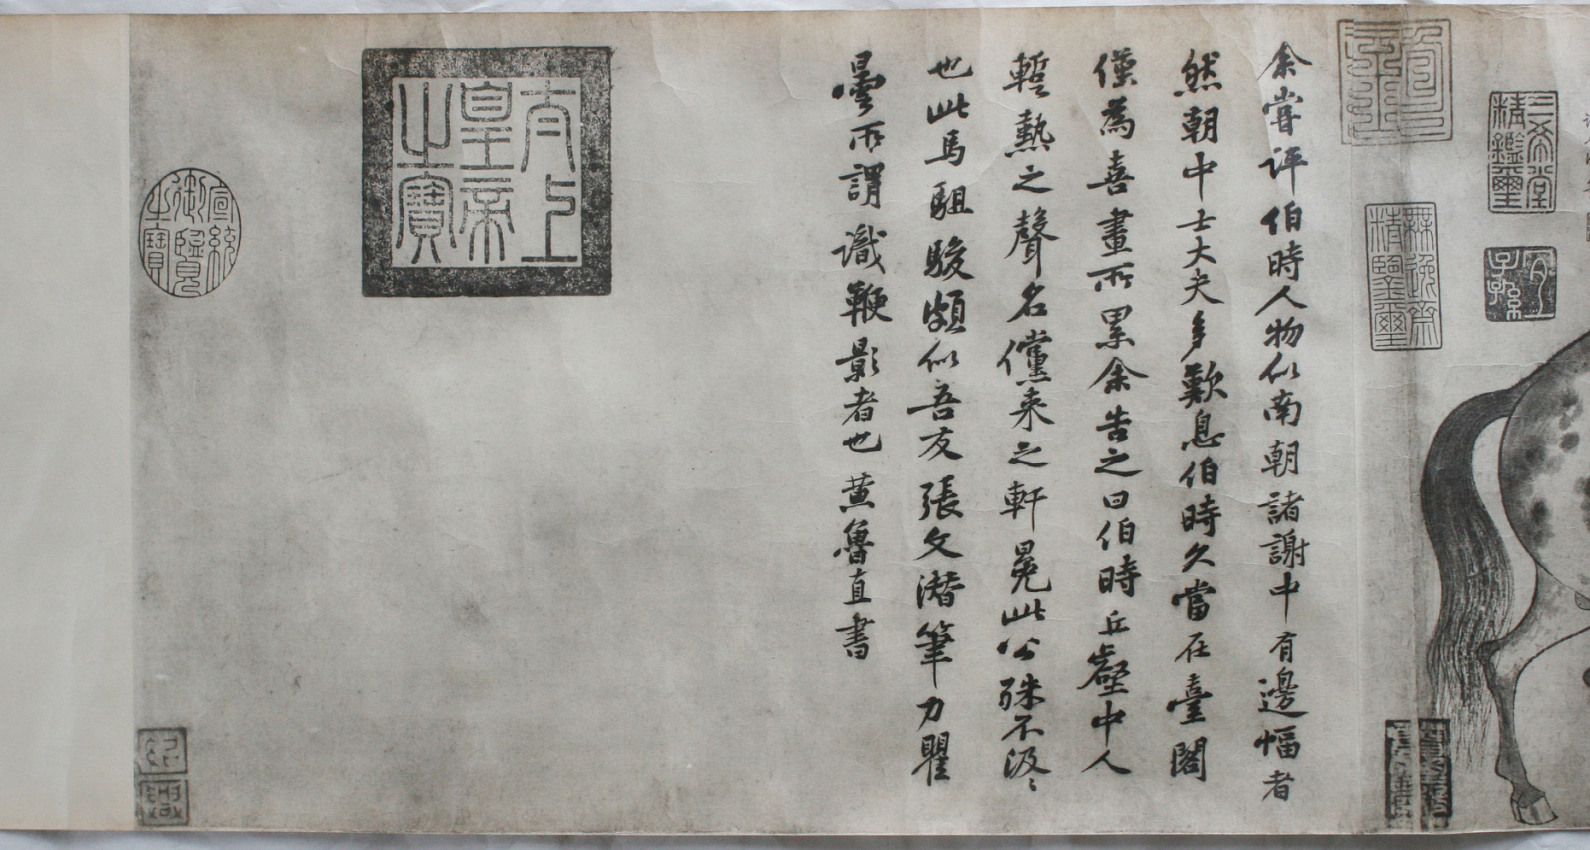 余嘗評伯時人物似南朝諸謝中有邊幅者
然朝中士大夫多歎息伯時久當在臺閣
僅為喜畫所累余告之曰伯時丘壑中人
蹔熱之聲名儻来之軒冕此公殊不汲〻
也此馬駔駿頗似吾友張文潛筆力瞿
曇所謂識鞭影者也黃魯直書
太上皇帝之寶
宣統御覽之寶
三希堂精鑑璽
宜子孫
無逸齋精鑒璽